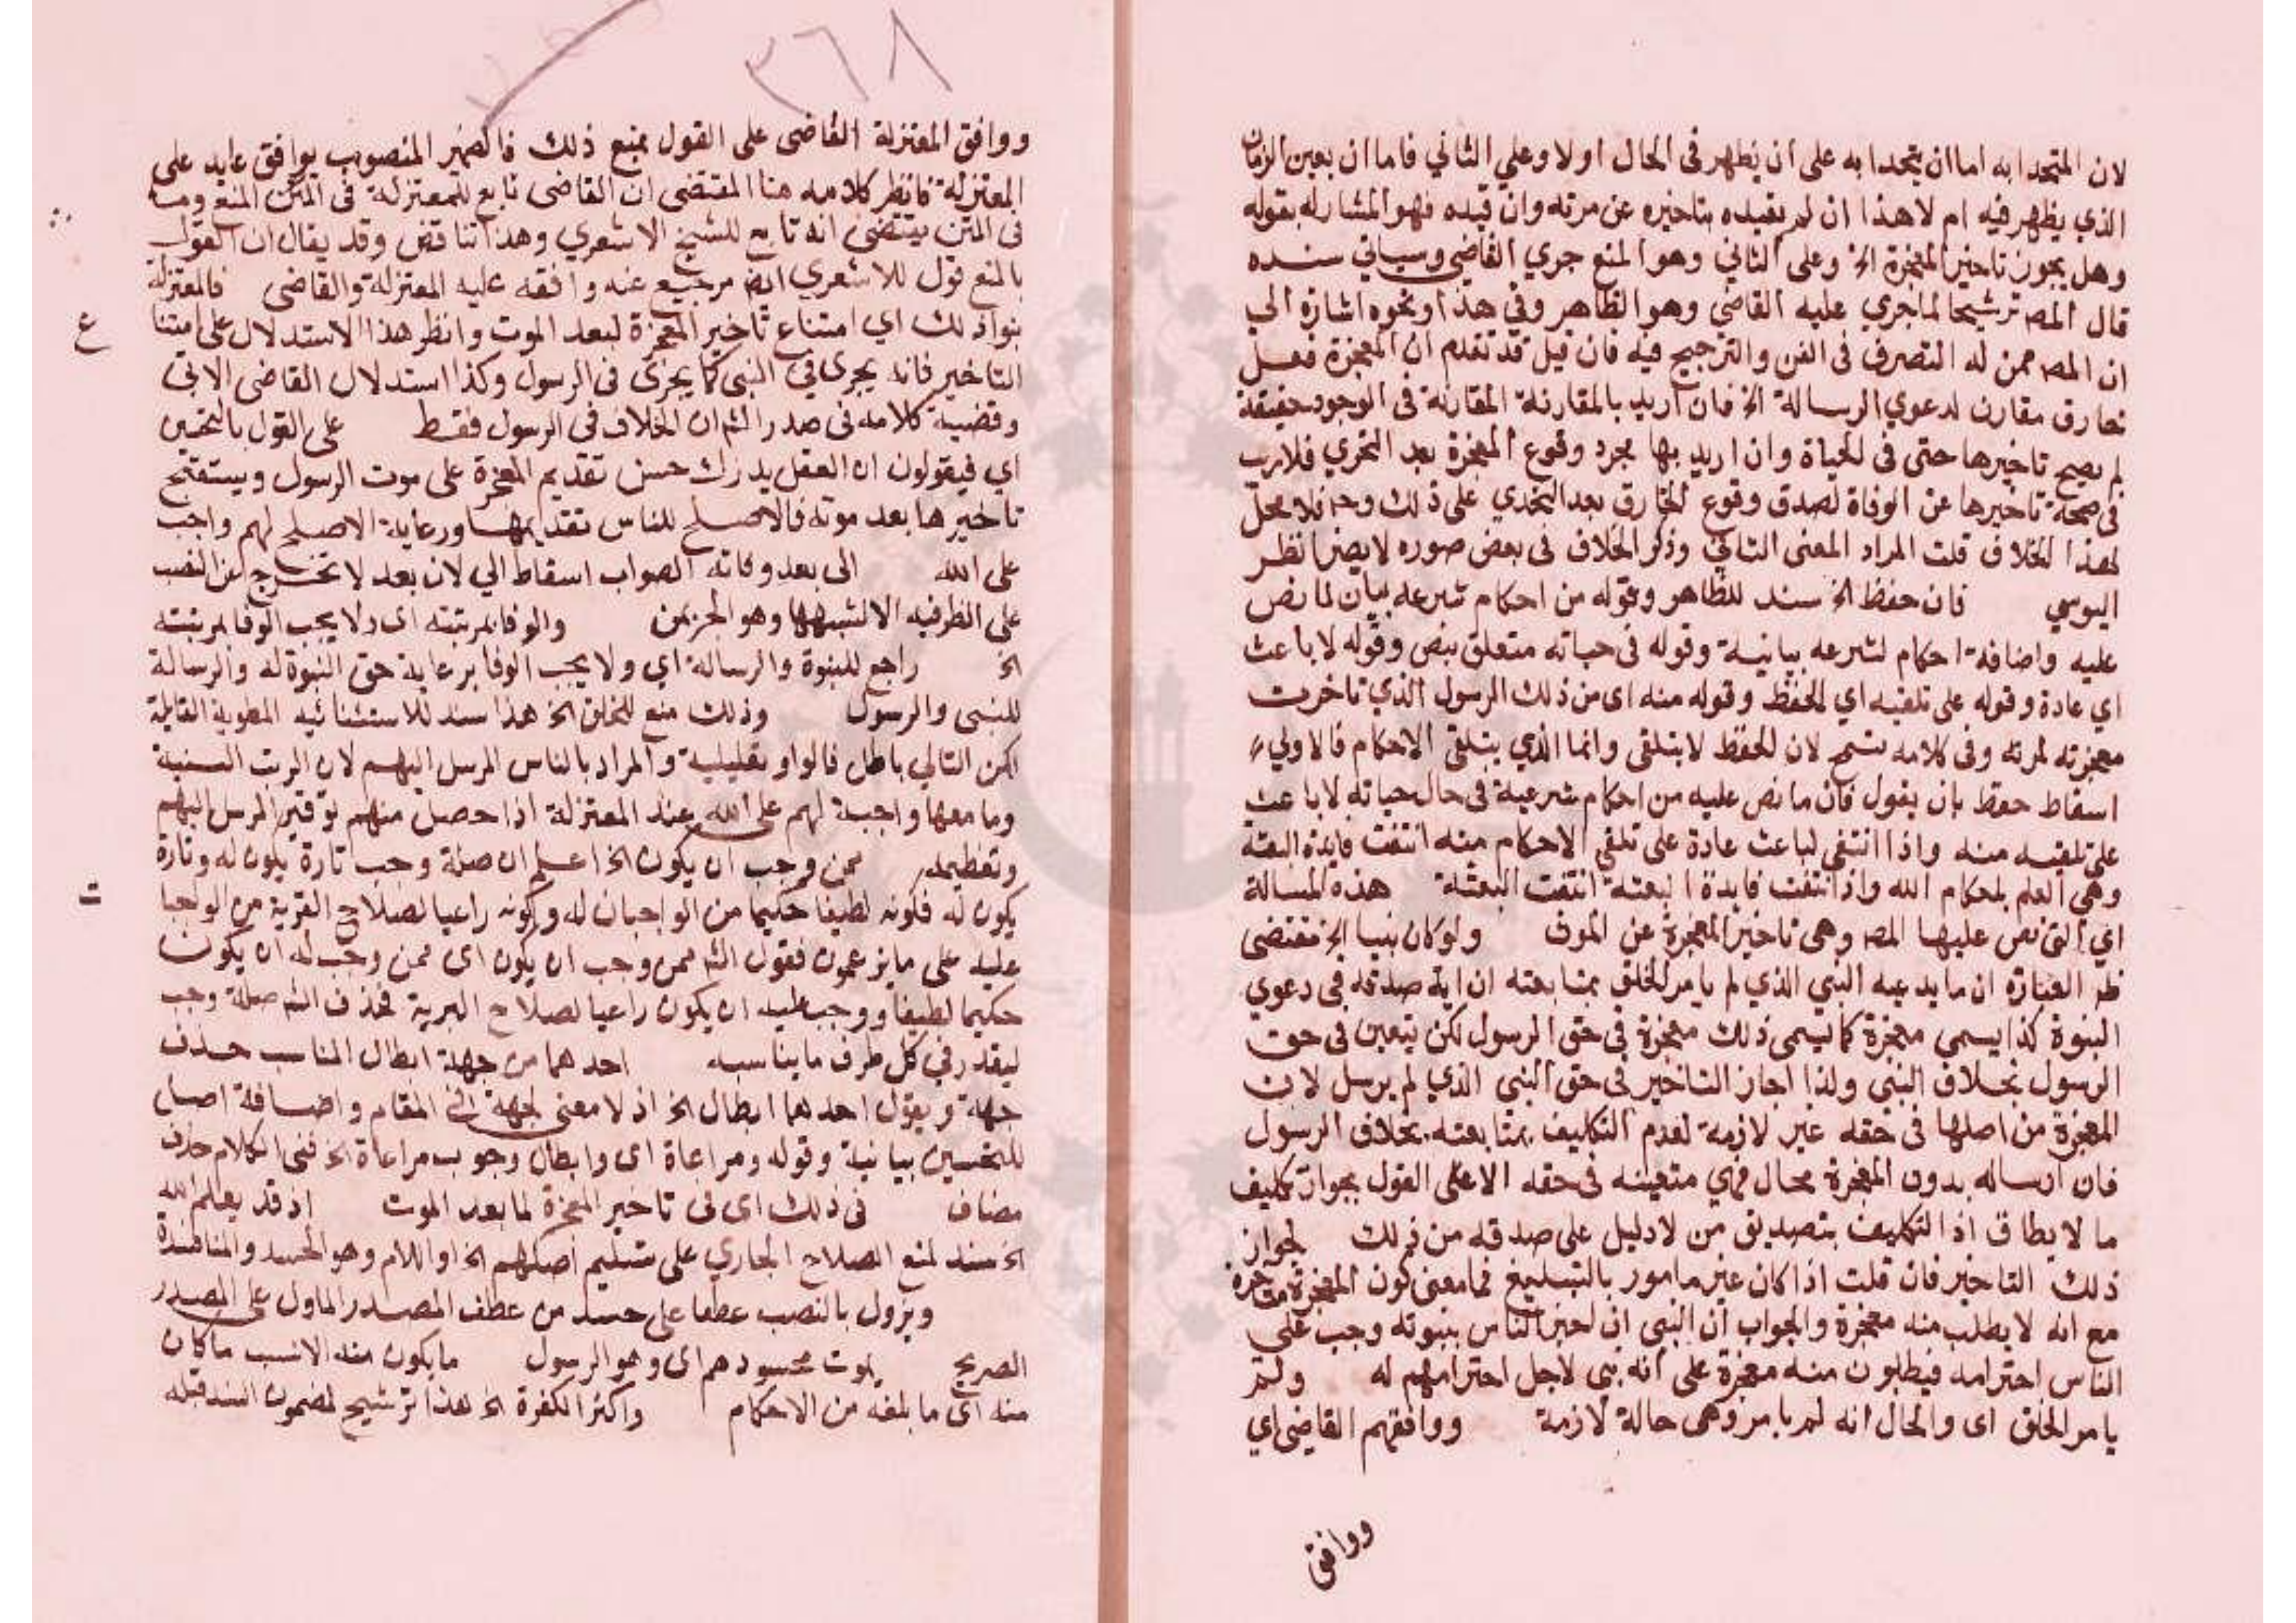 لان المتحدا به اما ان يتحدا به على ان يظهر فى الحال اولا وعلي الثاني فاما ان يعين الزمان
الذي يظهر فيه ام لا هذا ان لم يقيده بتاخيره عن مرته وان قيده فهو المشار له بقوله
وهل يجوز تاخير المعجزة الخ وعلى الثاني وهو المنع جري القاضي وسياتي سنده
قال المص ترشيحا لما جري عليه القاضي وهو الظاهر وفي هذا ونحوه اشارة الي
ان المص ممن له التصرف فى الفن والترجيح فيه فان قيل قد تقدم ان المعجزة فعل
خارق مقارن لدعوي الرسالة الخ فان اريد بالمقارنة المقارنة فى الوجود حقيقة
لم يصح تاخيرها حتى فى الحياة وان اريد بها مجرد وقوع المعجزة بعد التحري فلا ريب
فى صحة تاخيرها عن الوفاة لصدق وقوع الخارق بعد التحدي على ذلك وح فلا محل
لهذا الخلاف قلت المراد المعنى الثاني وذكر الخلاف فى بعض صوره لا يضر انظر
اليوسي فان حفظ الخ سند للظاهر وقوله من احكام شرعه بيان لما نص
عليه واضافة احكام لشرعه بيانية وقوله فى حياته متعلق بنص وقوله لا باعث
اي عادة وقوله على تلقيه اي الحفظ وقوله منه اى من ذلك الرسول الذي تاخرت
معجزته لمرته وفى كلامه تسمح لان الحفظ لا يتلقى وانما الذي يتلقى الاحكام فالاولي
اسقاط حفظ بان يقول فان ما نص عليه من احكام شرعية فى حال حياته لا باعث
على تلقيه منه واذا انتفى لباعث عادة على تلقي الاحكام منه انتفت فايدة البعثة
وهى العلم باحكام الله واذا انتفت فايدة البعثة انتفت البعثة هذه المسالة
اي التى نص عليها المص وهى تاخير المعجزة عن الموت ولو كان نبيا الخ مقتضى
ظ العبارة ان ما يدعيه النبي الذي لم يامر الخلق بمتابعته ان اية صدقه فى دعوي
النبوة كذا يسمى معجزة كما يسمى ذلك معجزة فى حق الرسول لكن يتعين فى حق
الرسول بخلاف النبى ولذا اجاز التاخير فى حق النبى الذي لم يرسل لان
المعجزة من اصلها فى حقه غير لازمة لعدم التكليف بمتابعته بخلاف الرسول
فان ارساله بدون المعجزة محال فهي متعينه فى حقه الا على القول بجواز تكليف
ما لا يطاق اذ التكليف بتصديق من لا دليل على صدقه من ذلك لجواز
ذلك التاخير فان قلت اذا كان غير مامور بالتبليغ فما معنى كون المعجزة متاخرة
مع انه لا يطلب منه معجزة والجواب ان النبى ان اخبر الناس بنبوته وجب على
الناس احترامه فيطلبون منه معجزة على انه نبى لاجل احترامهم له ولم
يامر الخلق اى والحال انه لم يامر وهى حالة لازمة ووافقهم القاضى اي
ووافق
٣٦٨
ووافق المعتزلة القاضى على القول بمنع ذلك فالضمير المنصوب بوافق عايد على
المعتزلة فانظر كلامه هنا المقتضى ان القاضى تابع للمعتزلة فى المتن المنع وما
فى المتن يقتضى انه تابع للشيخ الاشعري وهذا تناقض وقد يقال ان القول
بالمنع قول للاشعري ايض مرجوع عنه وافقه عليه المعتزلة والقاضى فالمعتزلة
بنوا ذلك اي امتناع تاخير المعجزة لبعد الموت وانظر هذا الاستدلال على امتنا
ع
التاخير فانه يجرى فى النبى كما يجرى فى الرسول وكذا استدلال القاضى الاتى
وقضية كلامه فى صدر الش ان الخلاف فى الرسول فقط على القول بالتحسين
اي فيقولون ان العقل يدرك حسن تقديم المعجزة على موت الرسول ويستقبح
تاخيرها بعد موته فالاصلح للناس تقديمها ورعاية الاصلح لهم واجب
على الله الى بعد وفاته الصواب اسقاط الي لان بعد لا تخرج عن النصب
على الظرفيه الا لشبهها وهو الجر بمن والوفا بمرتبته اى ولا يجب الوفا بمرتبته
الخ راجع للنبوة والرسالة اي ولا يجب الوفا برعاية حق النبوة له والرسالة
للنبى والرسول وذلك منع للخلق الخ هذا سند للاستثنائيه المطوية القايلة
لكن التالي باطل فالواو تعليلية والمراد بالناس المرسل اليهم لان الرتب السنية
وما معها واجبة لهم على الله عند المعتزلة اذا حصل منهم توقير المرسل اليهم
وتعظيمه ممن وجب ان يكون الخ اعلم ان صلة وجب تارة يكون له وتارة
يكون له فكونه لطيفا حكيما من الواجبات له وكونه راعيا لصلاح القرية من الواجبا
ت
عليه على ما يزعمون فقول الش ممن وجب ان يكون اى ممن وجب له ان يكون
حكيما لطيفا ووجب عليه ان يكون راعيا لصلاح البرية فحذف الش صلة وجب
ليقدر فى كل طرف ما يناسبه احدهما من جهة ابطال المناسب حذف
جهة ويقول احدهما ابطال الخ اذ لا معنى لجهة فى المقام واضافة اصل
للتحسين بيانية وقوله ومراعاة اى وابطال وجوب مراعاة الخ ففى الكلام حذف
مضاف فى ذلك اى فى تاخير المعجزة لما بعد الموت اذ قد يعلم الله
الخ سند لمنع الصلاح الجاري على تسليم اصلهم الخ او اللام وهو الحسد والمنافسة
ويزول بالنصب عطفا على حسد من عطف المصدر الماول على المصدر
الصريح بموت محسودهم اى وهو الرسول ما يكون منه الانسب ما كان
منه اى ما بلغه من الاحكام واكثر الكفرة الخ هذا ترشيح لمضمون السند قبله